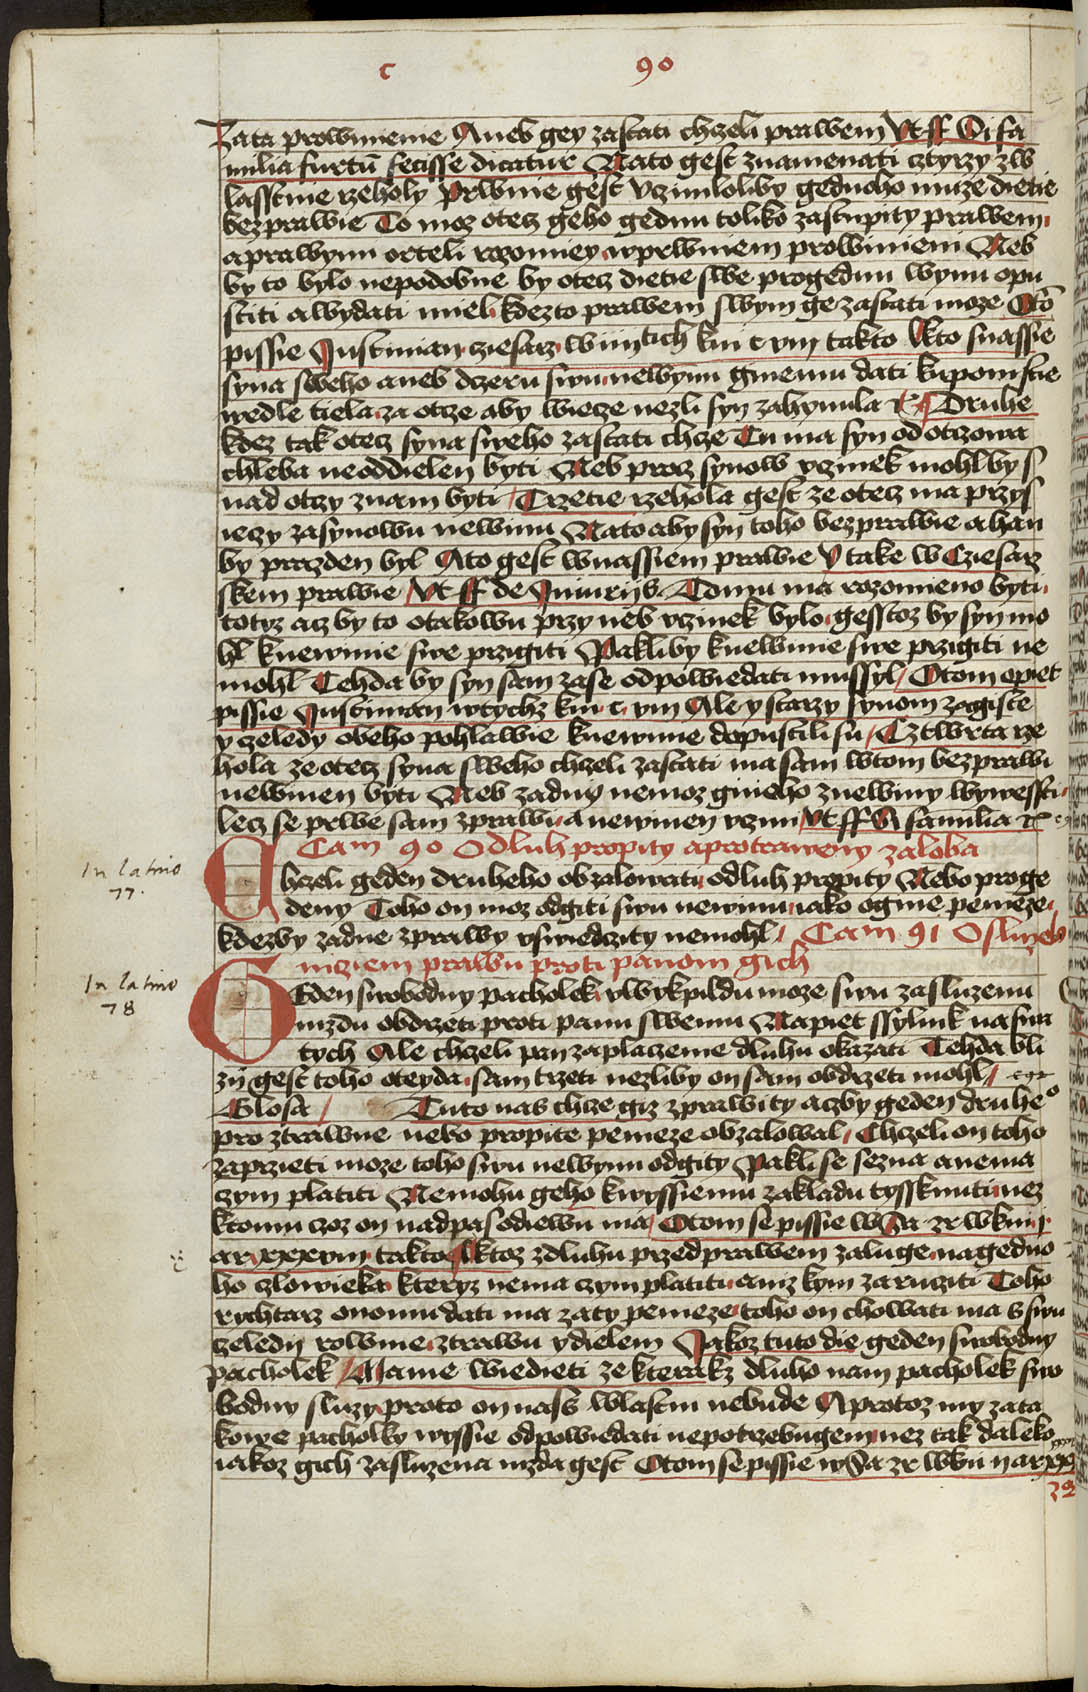 c 90
Zata prowinienie Aneb gey zastati chczeli prawem Vt ff Si fa
milia furtū fecisse dicatur Nato gest znamenati cztyrzy zw
lasstnie rzeholy Prwnie gest vcziniloliby gednoho muze dietie
bezprawie To moz otecz geho gednu toliko zastupity prawem
aprawynn orteli rozomniey wprwniem prowinieni Neb
by to bylo nepodobne by otecz dietie swe progednu wynu opu
stiti awydati miel kdezto prawem swym ge zastati moze Otō
pissie Justinian cziesarz wiiiitich kni c viii takto Kto snassie
syna sweho aneb dczeru swu newynnu gmenu dati kupomstie
wedle tiela za otcze aby wiecze nezli syn zahynula ꝛc Druhe
kdez tak otecz syna sweho zastati chcze Tu ma syn od otczowa
chleba neoddielen byti Neb procz synow vczinek mohl by s
nad otczy znam byti Trzetie rzehola gest ze otecz ma przys
ieczy zasynowu newinu Nato aby syn toho bezprawie ahan
by prazden byl Ato gest wnassiem prawie Y take w Cziesarz
skem prawie Vt ff de Iniurijs Tomu ma rozomieno byti
totyz acz by to otakowu przy neb vczinek bylo gesstoz by syn mo
hl knewinie swe przigiti Pakliby knewinie swe przigiti ne
mohl Tehda by syn sam zase odpowiedati mussyl Otom opiet
pissie Justinian wtychz kni c viii Ale y starzy synom zagiste
y czeledy obeho pohlawie knewinie dopustili su Cztwrta rze
hola ze otecz syna sweho chczeli zastati ma sam wtom bezprawi
newinen byti Neb zadny nemoz gineho znewiny wywessti
lecz se prwe sam zprawi anewinen vczini Vt ff Si familia ꝛc
Cam 90 Odluh propity aprotraweny zaloba
In latino
77.
Achczeli geden druheho obzalowati odluh propity Nebo proge
deny Toho on moz odgiti swu newinu iako ogine penieze
kdezby zadne zprawy vswiedczity nemohl Cam 91 Osluzeb
nicziem prawu proti panom gich
In latino
78
Geden swobodny pacholek ylwykpildu moze swu zasluzenu
mzdu obdrzeti proti panu swemu Napiet ssylink na swa
tych Ale chczeli pan zaplaczenie dluhu okazati Tehda bli
zij gest toho oteyda sam trzeti nezliby on sam obdrzeti mohl
Glosa Tuto nas chcze giz zprawity aczby geden druheo
pro ztrawne nebo propite penieze obzalowal Chczeli on toho
zaprzieti moze toho swu newynnu odgity Pakli se sezna anema
czym platiti Nemohu geho kwyssiemu zakladu tyssknuti nez
ktomu czoz on nadpas odiewu ma Otom se pissie wSa zr wkni j
ar xxxviii takto Ktoz zdluhu przed prawem zaluge nagedno
ho czlowieka kteryz nema czym platiti aniz kym zarucziti Toho
rychtarz onomu dati ma zaty penieze toho on chowati ma s swu
czeledij rowinie ztrawu ydielem Jakoz tuto die geden swobodny
pacholek Mame wiedieti ze kterakz dluho nam pacholek swo
bodny sluzy proto on nass wlastni nebude Aprotoz my zata
kowe pacholky wyssie odpowiedati nepotrzebugem nez tak daleko
iakoz gich zasluzena mzda gest Otom se pissie wSa zr wkn ij ar xxx